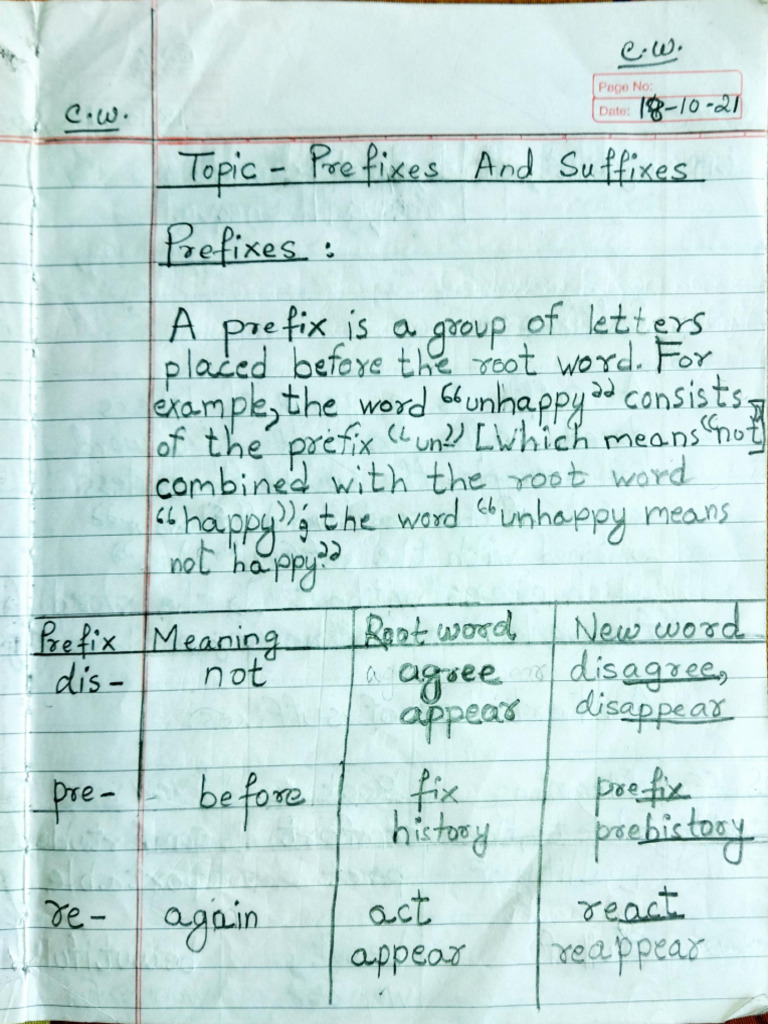 C.W.
Page No:
C.W.
Date: 18-10-21
Topic - Prefixes And Suffixes
Prefixes :
A prefix is a group of letters
placed before the root word. For
example, the word “unhappy” consists
of the prefix “un” [Which means “not”]
combined with the root word
“happy”; the word “unhappy means
not happy.”
Prefix Meaning Root word New word
dis- not agree disagree,
appear disappear
pre- before fix prefix
history prehistory
re- again act react
appear reappear